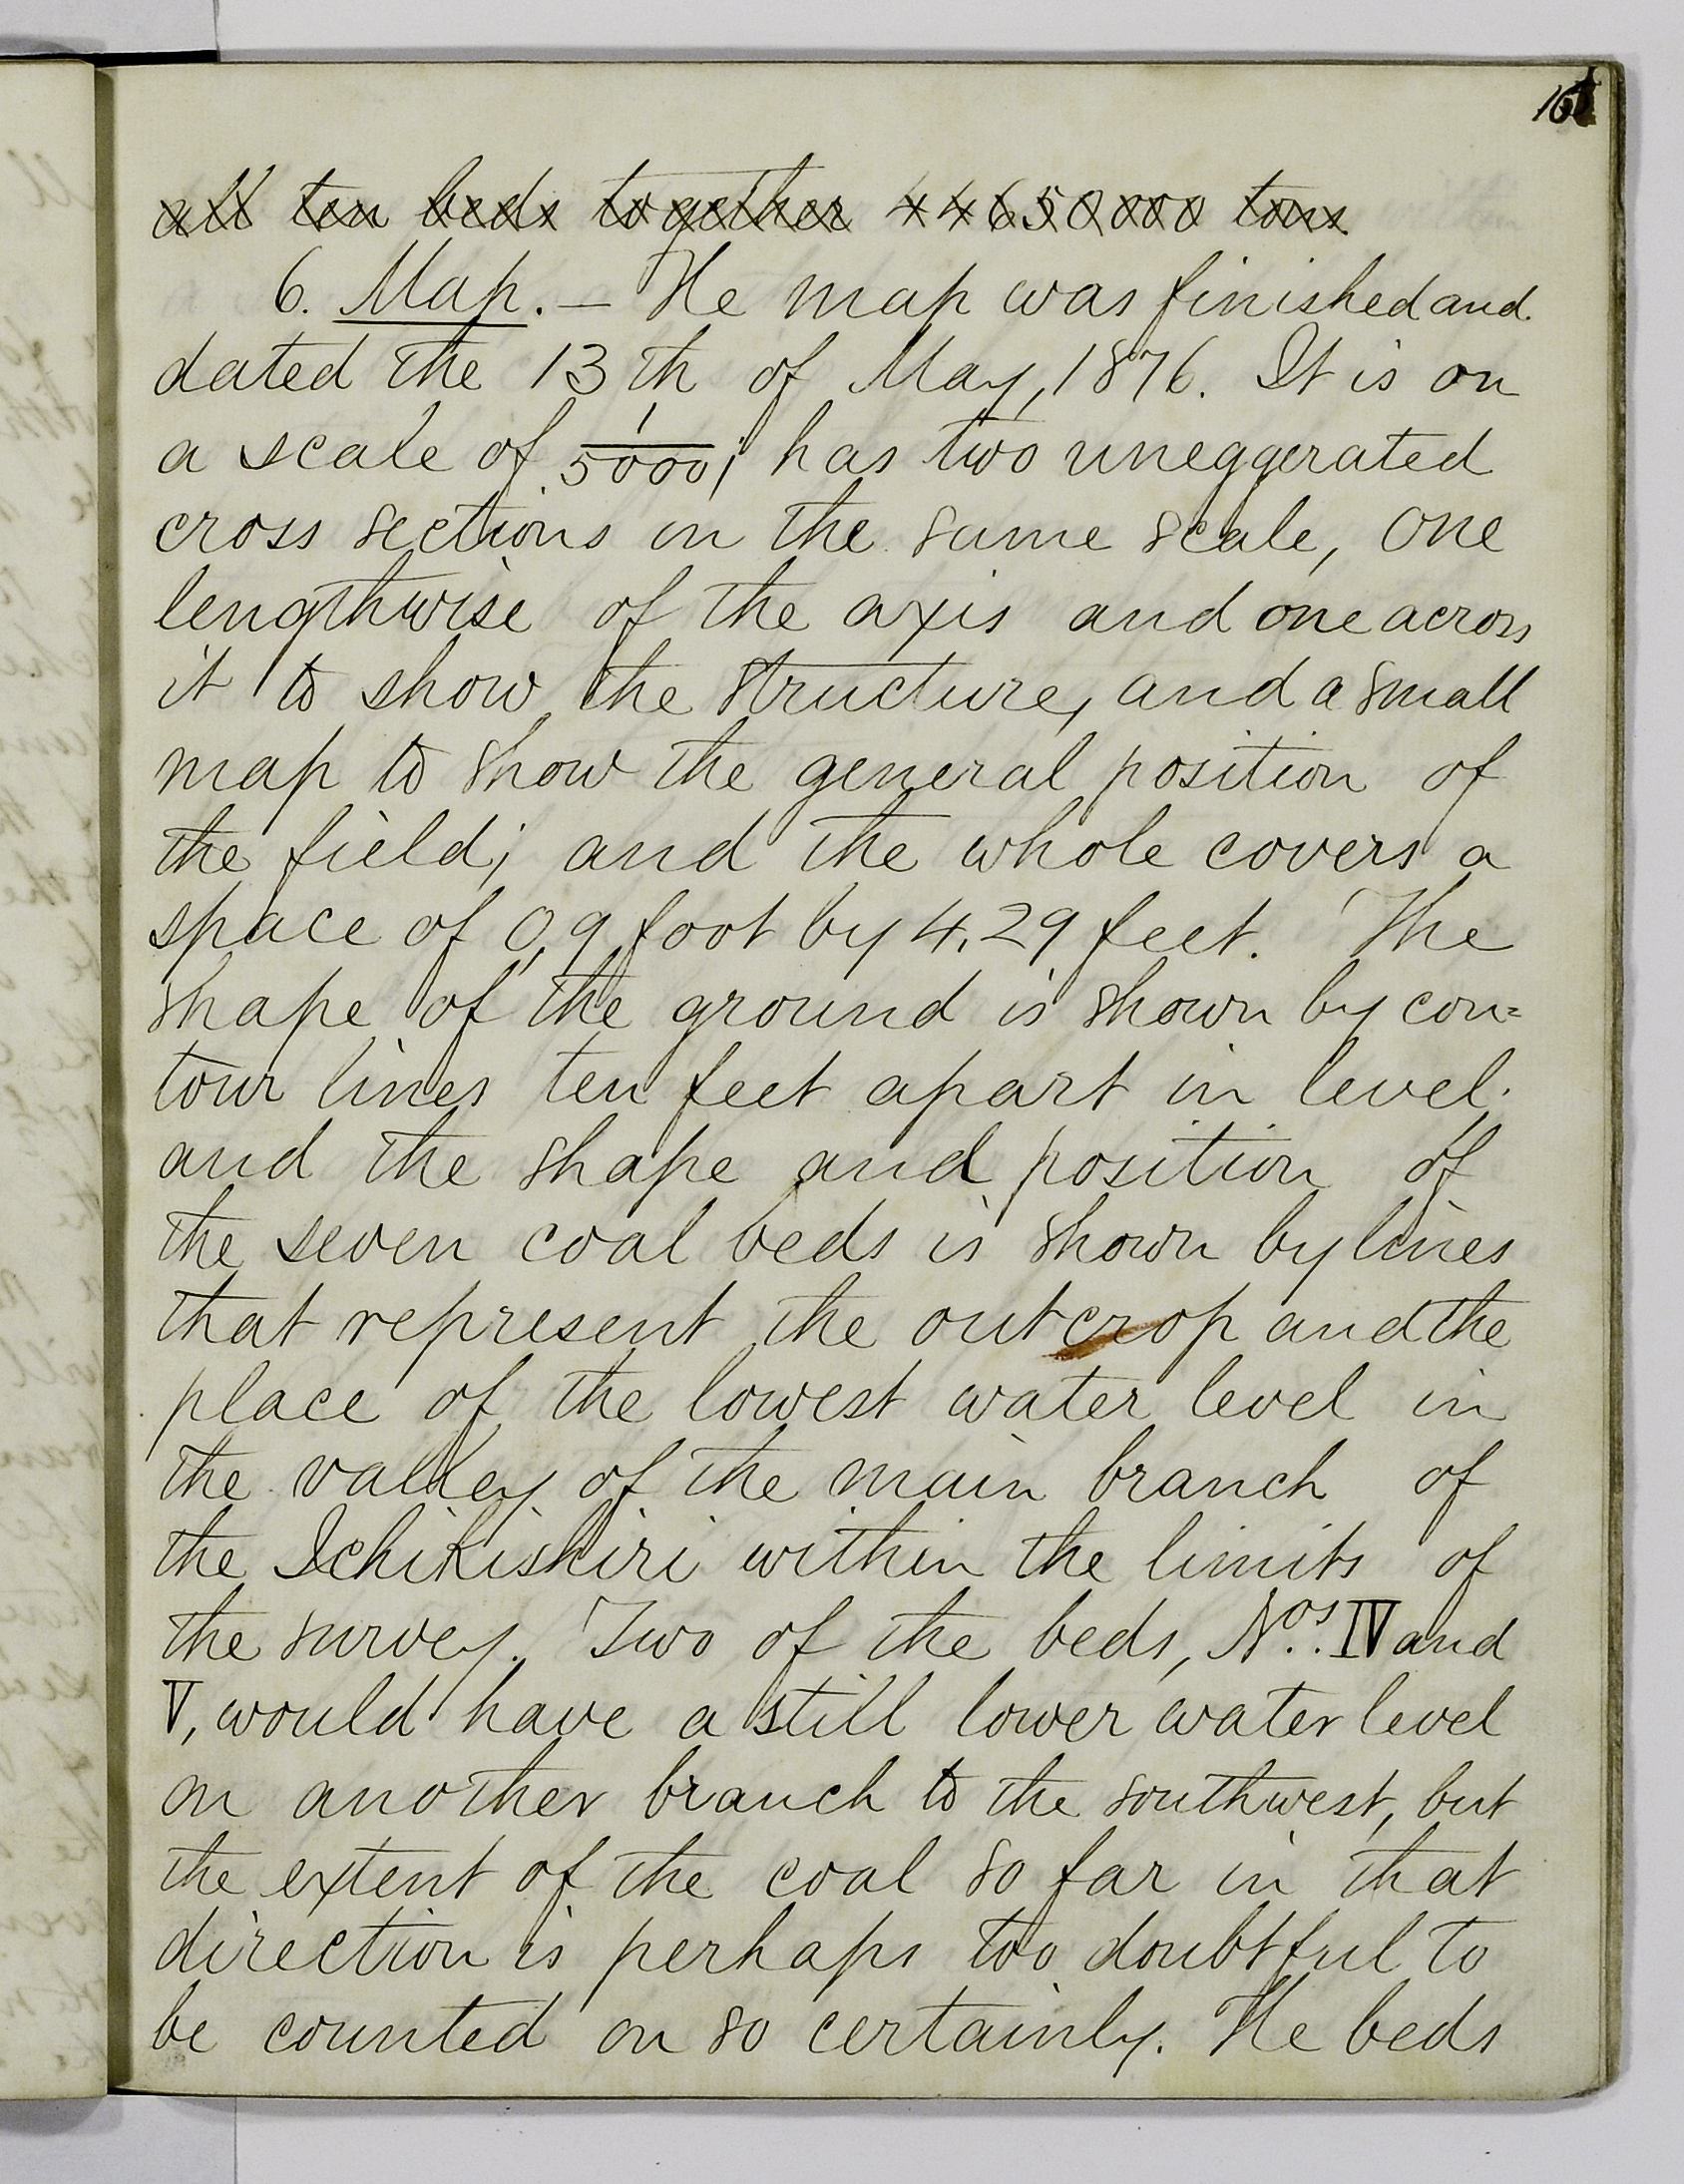 all ten beds together 44650000 tons
6. Map. — The map was finished and
dated the 13th of May, 1876. It is on
a scale of 1/5000; has two uneggerated
cross sections on the same scale, one
lengthwise of the axis and one across
it to show the structure, and a small
map to show the general position of
the field; and the whole covers a
space of 0,9 foot by 4,29 feet. The
shape of the ground is shown by con=
tour lines ten feet apart in level;
and the shape and position of
the seven coal beds is shown by lines
that represent the outcrop and the
place of the lowest water level in
the valley of the main branch of
the Ichikishiri within the limits of
the survey. Two of the beds, Nos. IV and
V, would have a still lower water level
on another branch to the southwest, but
the extent of the coal so far in that
direction is perhaps too doubtful to
be counted on so certainly. The beds